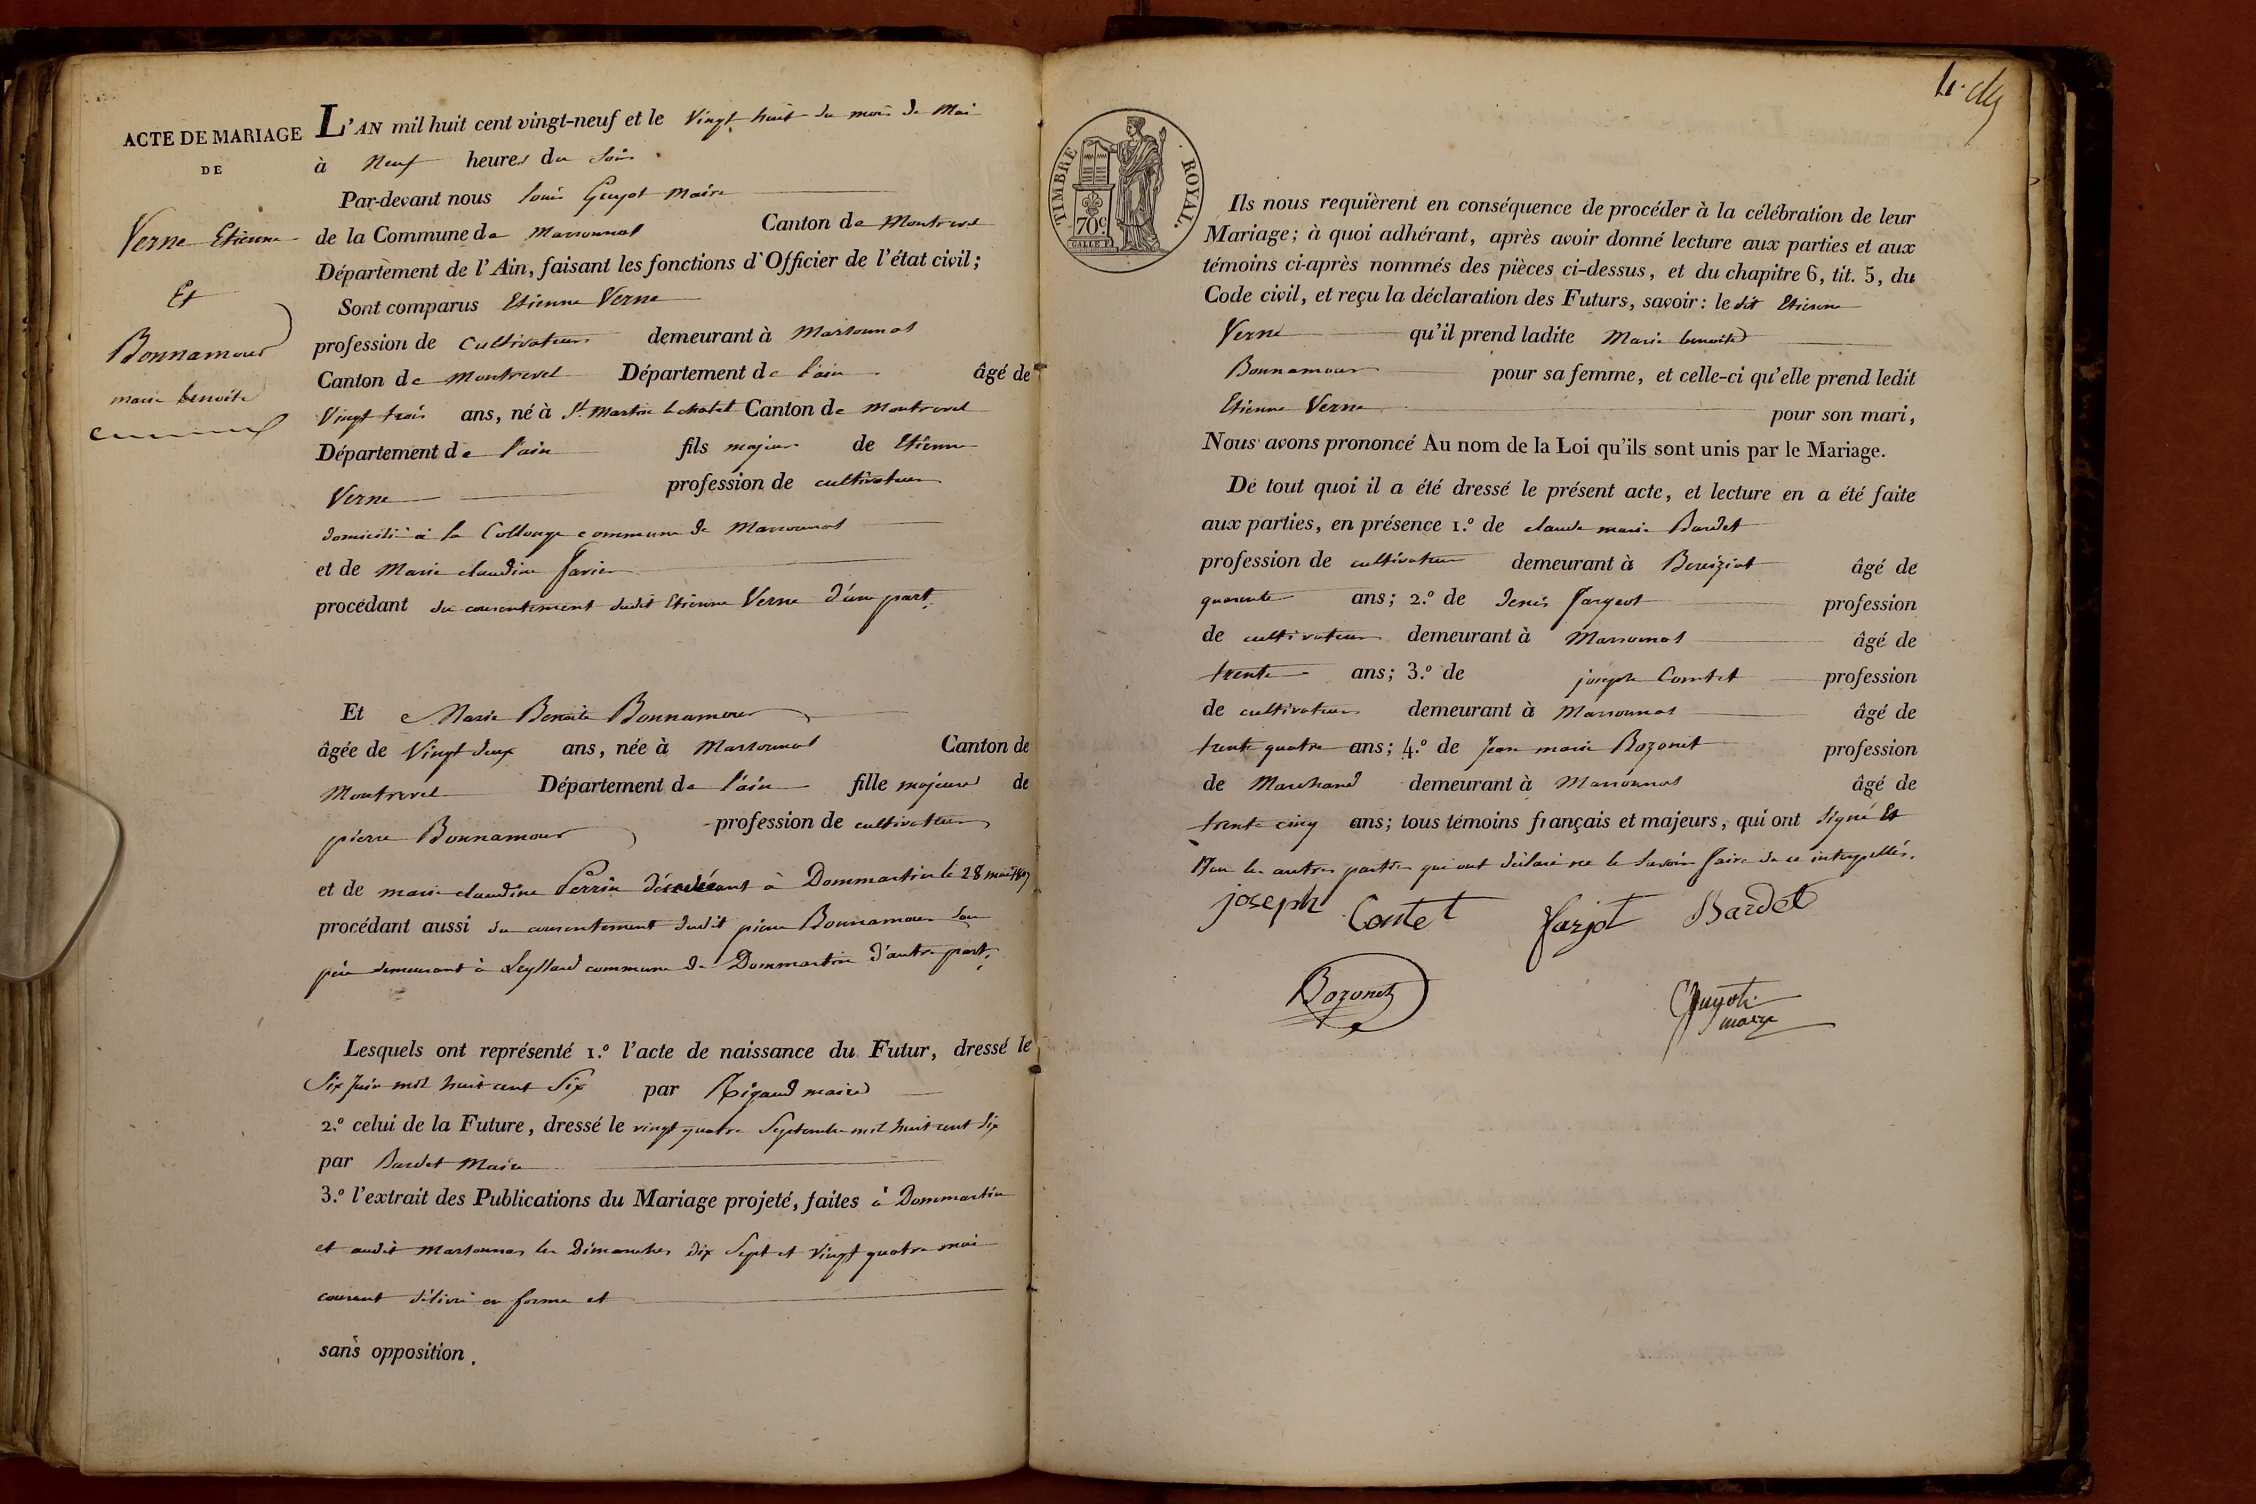 ACTE DE MARIAGE
DE
Verne Etienne
Et
Bonnamour
marie benoite
L'AN mil huit cent vingt-neuf et le Vingt huit du mois de Mai
à Neuf heures du Soir
Par-devant nous louis Guyot Maire
de la Commune de Marsonnas Canton de Montrevel
Département de l'Ain, faisant les fonctions d'Officier de l'état civil;
Sont comparus Etienne Verne
profession de Cultivateur demeurant à Marsonnas
Canton de Montrevel Département de l'ain âgé de
Vingt trois ans, né à St. Martin le chatel Canton de Montrevel
Département de l'ain fils majeur de Etienne
Verne profession de cultivateur
domicilié à la Collonge commune de Marsonnas
et de Marie claudine
procédant du consentement dudit Etienne Verne d'une part.
Et Marie Benoite Bonnamour
âgée de Vingt deux ans, née à Marsonnas Canton de
Montrevel Département de l'ain fille majeure de
pierre Bonnamour profession de cultivateur
et de marie claudine Perrin à Dommartin le 28 mai
procédant aussi du consentement dudit pierre Bonnamour son
père demeurant à commune de Dommartin d'autre part.
Lesquels ont représenté 1.º l'acte de naissance du Futur, dressé le
Six Juin mil huit cent Six par Rigaud maire
2.º celui de la Future, dressé le vingt quatre Septembre mil huit cent Six
par Bardet Maire
3.º l'extrait des Publications du Mariage projeté, faites à Dommartin
et audit Marsonnas les Dimanches dix Sept et Vingt quatre mai
courant délivré en forme et
sans opposition.
TIMBRE ROYAL.
70c
Ils nous requièrent en conséquence de procéder à la célébration de leur
Mariage; à quoi adhérant, après avoir donné lecture aux parties et aux
témoins ci-après nommés des pièces ci-dessus, et du chapitre 6, tit. 5, du
Code civil, et reçu la déclaration des Futurs, savoir: le dit Etienne
Verne qu'il prend ladite Marie benoite
Bonnamour pour sa femme, et celle-ci qu'elle prend ledit
Etienne Verne pour son mari,
Nous avons prononcé Au nom de la Loi qu'ils sont unis par le Mariage.
De tout quoi il a été dressé le présent acte, et lecture en a été faite
aux parties, en présence 1.º de claude marie Bardet
profession de cultivateur demeurant à Bereiziat âgé de
quarante ans; 2.º de denis Fargeot profession
de cultivateur demeurant à Marsonnas âgé de
trente ans; 3.º de joseph Comtet profession
de cultivateur demeurant à Marsonnas âgé de
trente quatre ans; 4.º de Jean marie Bozonet profession
de Marchand demeurant à Marsonnas âgé de
trente cinq ans; tous témoins français et majeurs, qui ont Signé Et
Non les autres parties qui ont déclaré ne le Savoir faire de ce interpellés.
joseph Contet Farjot Bardet
Bozonet
Guyot
maire